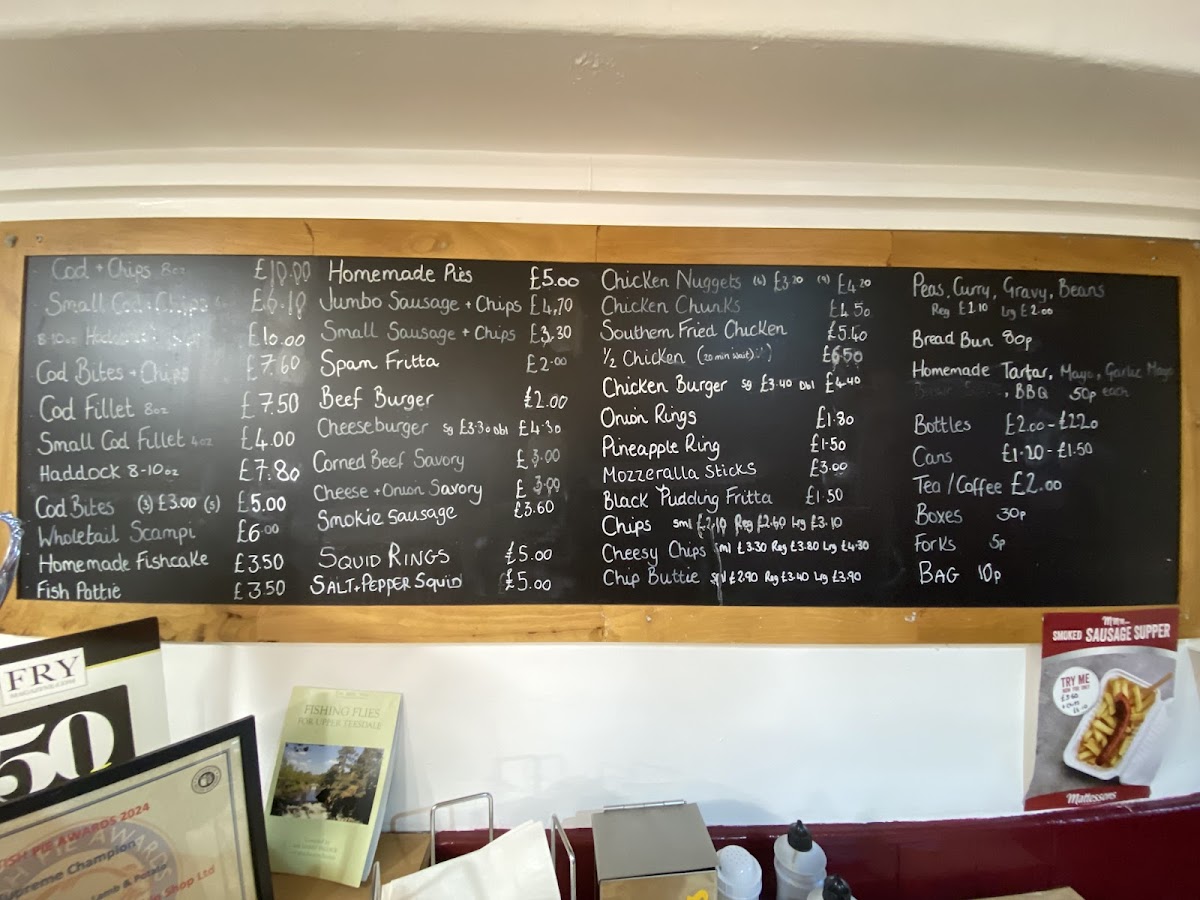 Cod + Chips 8oz £10.00
Small Cod + Chips £6.10
8-10oz Haddock £10.00
Cod Bites + Chips £7.60
Cod Fillet 8oz £7.50
Small Cod Fillet 4oz £4.00
Haddock 8-10oz £7.80
Cod Bites (3) £3.00 (5) £5.00
Wholetail Scampi £6.00
Homemade Fishcake £3.50
Fish Pattie £3.50
Homemade Pies £5.00
Jumbo Sausage + Chips £4.70
Small Sausage + Chips £3.30
Spam Fritta £2.00
Beef Burger £2.00
Cheeseburger sg £3.30 Dbl £4.30
Corned Beef Savory £3.00
Cheese + Onion Savory £3.00
Smokie Sausage £3.60
SQUID RINGS £5.00
SALT+PEPPER SQUID £5.00
Chicken Nuggets (6) £3.20 (9) £4.20
Chicken Chunks £4.50
Southern Fried Chicken £5.40
½ Chicken (20 min wait) £6.50
Chicken Burger sg £3.40 Dbl £4.40
Onion Rings £1.80
Pineapple Ring £1.50
Mozzeralla Sticks £3.00
Black Pudding Fritta £1.50
Chips sml £2.10 Reg £2.60 Lrg £3.10
Cheesy Chips sml £3.30 Reg £3.80 Lrg £4.30
Chip Buttie sml £2.90 Reg £3.40 Lrg £3.90
Peas, Curry, Gravy, Beans
Reg £1.10 Lrg £2.00
Bread Bun 80p
Homemade Tartar, Mayo, Garlic Mayo
, BBQ 50p each
Bottles £2.00 - £2.20
Cans £1.20 - £1.50
Tea / Coffee £2.00
Boxes 30p
Forks 5p
BAG 10p
FRY
50
FISHING FLIES
FOR UPPER TEESDALE
PIE AWARDS 2024
Supreme Champion
Lamb & Potato
Shop Ltd
Mmm...
SMOKED SAUSAGE SUPPER
TRY ME
£3.60
Mattessons